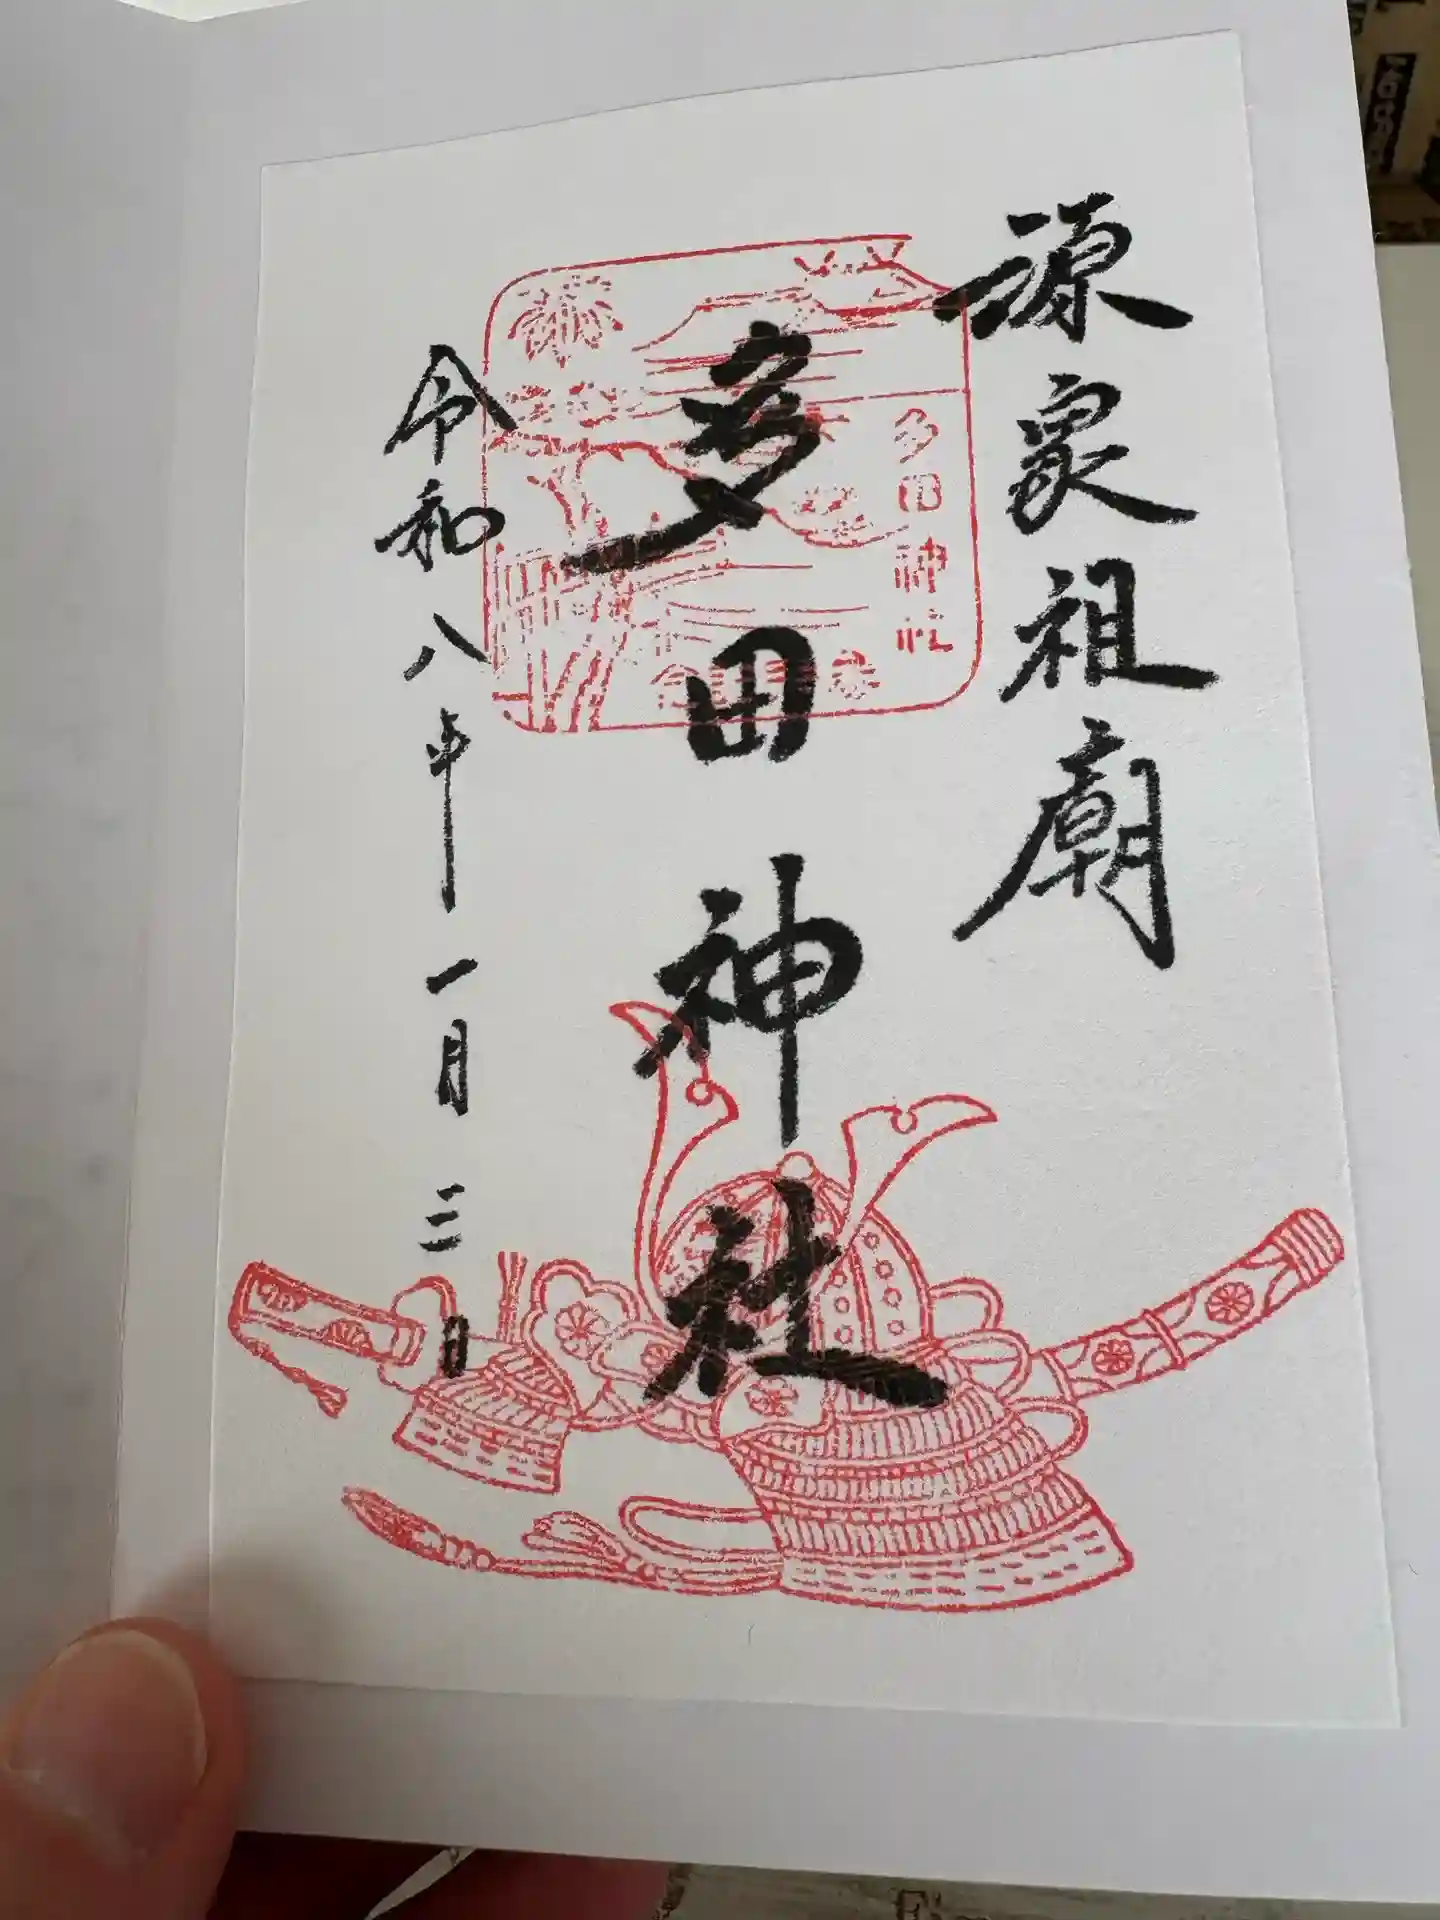 源家祖廟
多田神社
多田神社
令和八年一月三日